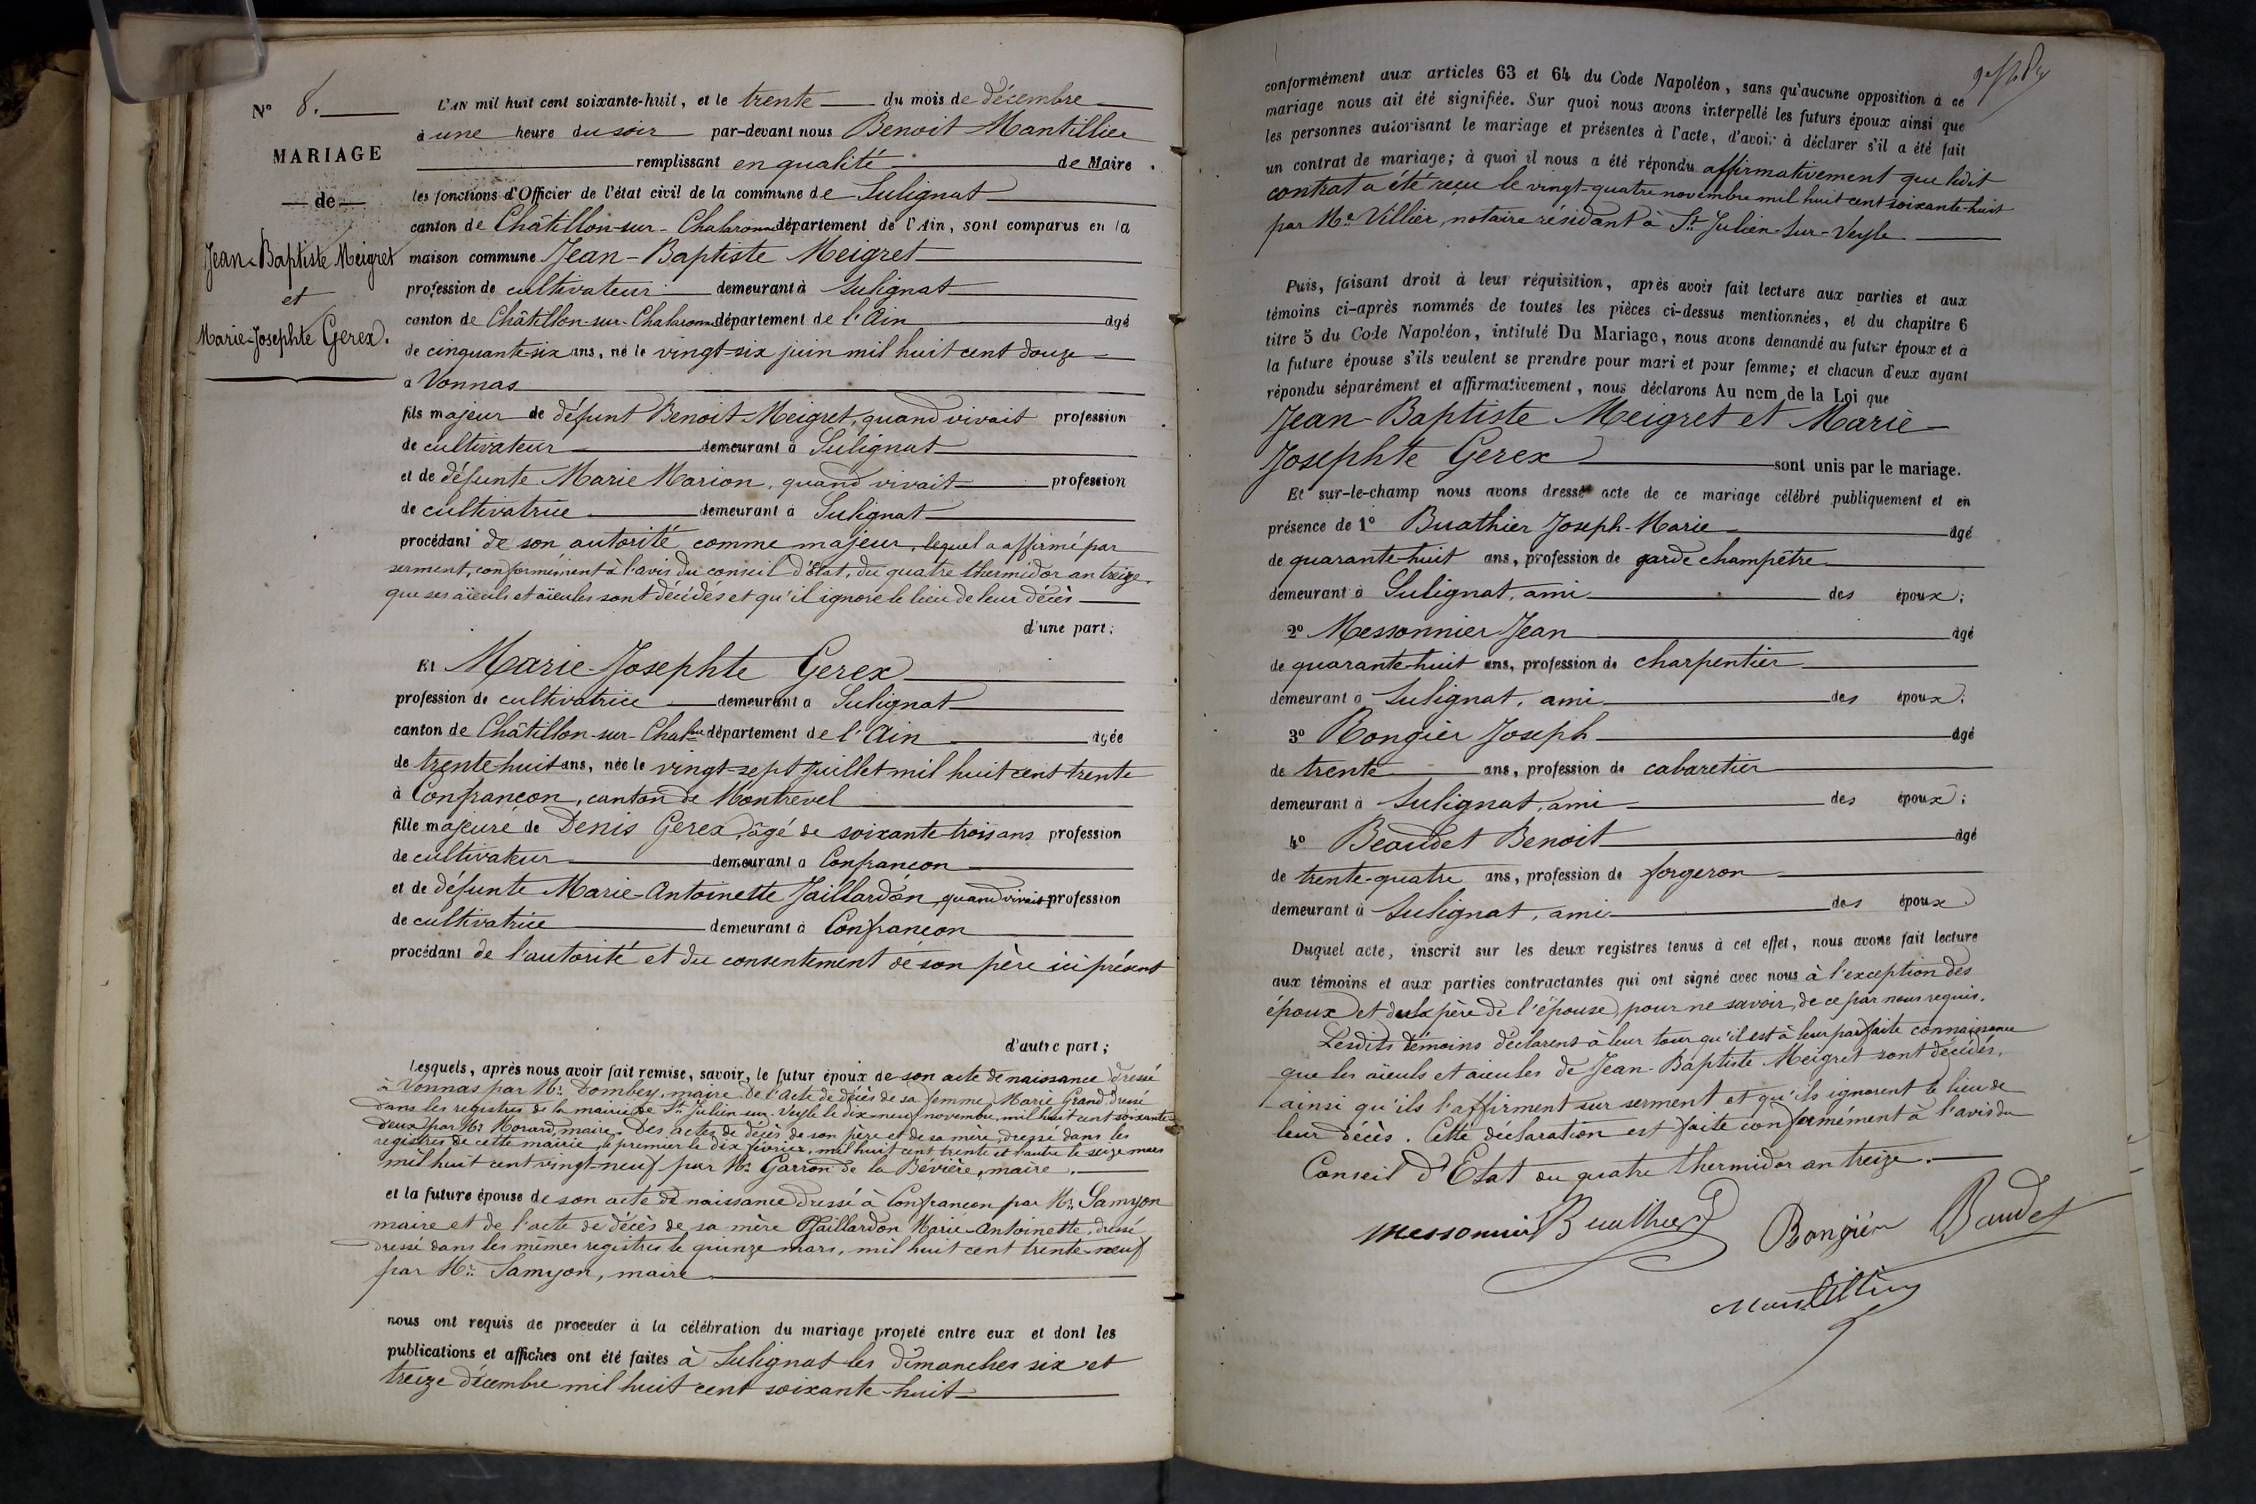 N° 8.
MARIAGE
de
Jean-Baptiste Meigret
et
Marie-Josephte Gerex.
L'AN mil huit cent soixante-huit, et le trente du mois de décembre
à une heure du soir par-devant nous Benoit Mantillier
remplissant en qualité de Maire
les fonctions d'Officier de l'état civil de la commune de Sulignat
canton de Châtillon-sur-Chalaronne département de l'Ain, sont comparus en la
maison commune Jean-Baptiste Meigret
profession de cultivateur demeurant à Sulignat
canton de Châtillon-sur-Chalaronne département de l'Ain âgé
de cinquante-six ans, né le vingt-six juin mil huit cent douze
à Vonnas
fils majeur de défunt Benoit Meigret, quand vivait profession
de cultivateur demeurant à Sulignat
et de défunte Marie Marion, quand vivait profession
de cultivatrice demeurant à Sulignat
procédant de son autorité comme majeur, lequel a affirmé par
serment, conformément à l'avis du conseil d'Etat, du quatre thermidor an treize,
que ses aïeuls et aïeules sont décédés et qu'il ignore le lieu de leur décès
d'une part;
Et Marie-Josephte Gerex
profession de cultivatrice demeurant à Sulignat
canton de Châtillon-sur-Chalne département de l'Ain âgée
de trente-huit ans, née le vingt-sept juillet mil huit cent trente
à Confrançon, canton de Montrevel
fille majeure de Denis Gerex, âgé de soixante-trois ans profession
de cultivateur demeurant à Confrançon
et de défunte Marie-Antoinette Jaillardon, quand vivait profession
de cultivatrice demeurant à Confrançon
procédant de l'autorité et du consentement de son père ici présent
d'autre part;
Lesquels, après nous avoir fait remise, savoir, le futur époux de son acte de naissance dressé
à Vonnas par Mr. Dombey, maire. De l'acte de décès de sa femme Marie Grand, dressé
dans les registres de la mairie de St. Julien-sur-Veyle le dix-neuf novembre, mil huit cent soixante-
deux par Mr Morard, maire. Des actes de décès de son père et de sa mère, dressé dans les
registres de cette mairie, le premier le dix février, mil huit cent trente et l'autre le seize mars
mil huit cent vingt-neuf par Mr. Garron de la Bévière, maire.
et la future épouse de son acte de naissance dressé à Confrançon par Mr. Samyon
maire et de l'acte de décès de sa mère Jaillardon Marie-Antoinette, dressé
dressé dans les mêmes registres le quinze mars, mil huit cent trente-neuf
par Mr. Samyon, maire
nous ont requis de procéder à la célébration du mariage projeté entre eux et dont les
publications et affiches ont été faites à Sulignat les dimanches six et
treize décembre mil huit cent soixante-huit
conformément aux articles 63 et 64 du Code Napoléon, sans qu'aucune opposition à ce
mariage nous ait été signifiée. Sur quoi nous avons interpellé les futurs époux ainsi que
les personnes autorisant le mariage et présentes à l'acte, d'avoir à déclarer s'il a été fait
un contrat de mariage; à quoi il nous a été répondu affirmativement que ledit
contrat a été reçu le vingt-quatre novembre mil huit cent soixante-huit
par Me. Villier, notaire résidant à St. Julien-sur-Veyle
Puis, faisant droit à leur réquisition, après avoir fait lecture aux parties et aux
témoins ci-après nommés de toutes les pièces ci-dessus mentionnées, et du chapitre 6
titre 5 du Code Napoléon, intitulé Du Mariage, nous avons demandé au futur époux et à
la future épouse s'ils veulent se prendre pour mari et pour femme; et chacun d'eux ayant
répondu séparément et affirmativement, nous déclarons Au nom de la Loi que
Jean-Baptiste Meigret et Marie-
Josephte Gerex sont unis par le mariage.
Et sur-le-champ nous avons dressé acte de ce mariage célébré publiquement et en
présence de 1° Buathier Joseph-Marie âgé
de quarante-huit ans, profession de garde champêtre
demeurant à Sulignat, ami des époux;
2° Messonnier Jean âgé
de quarante-huit ans, profession de charpentier
demeurant à Sulignat, ami des époux;
3° Rongier Joseph âgé
de trente ans, profession de cabaretier
demeurant à Sulignat, ami des époux;
4° Beaudet Benoit âgé
de trente-quatre ans, profession de forgeron
demeurant à Sulignat, ami des époux
Duquel acte, inscrit sur les deux registres tenus à cet effet, nous avons fait lecture
aux témoins et aux parties contractantes qui ont signé avec nous à l'exception des
époux et du père de l'épouse, pour ne savoir, de ce par nous requis.
Lesdits témoins déclarent à leur tour qu'il est à leur parfaite connaissance
que les aïeuls et aïeules de Jean-Baptiste Meigret sont décédés,
ainsi qu'ils l'affirment sur serment et qu'ils ignorent le lieu de
leur décès. Cette déclaration est faite conformément à l'avis du
Conseil d'Etat du quatre thermidor an treize.
Messonnier Buathier Rongier Baudet
Mantillier